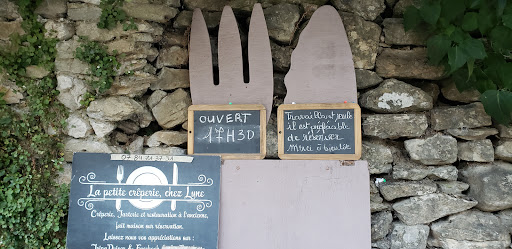 OUVERT
17H30
Travaillant seule
il est préférable
de réserver
Merci à bientôt
La petite crêperie, chez Lyne
Crêperie, Tarterie et restauration à l'ancienne,
fait maison sur réservation.
Laissez nous vos appréciations sur :